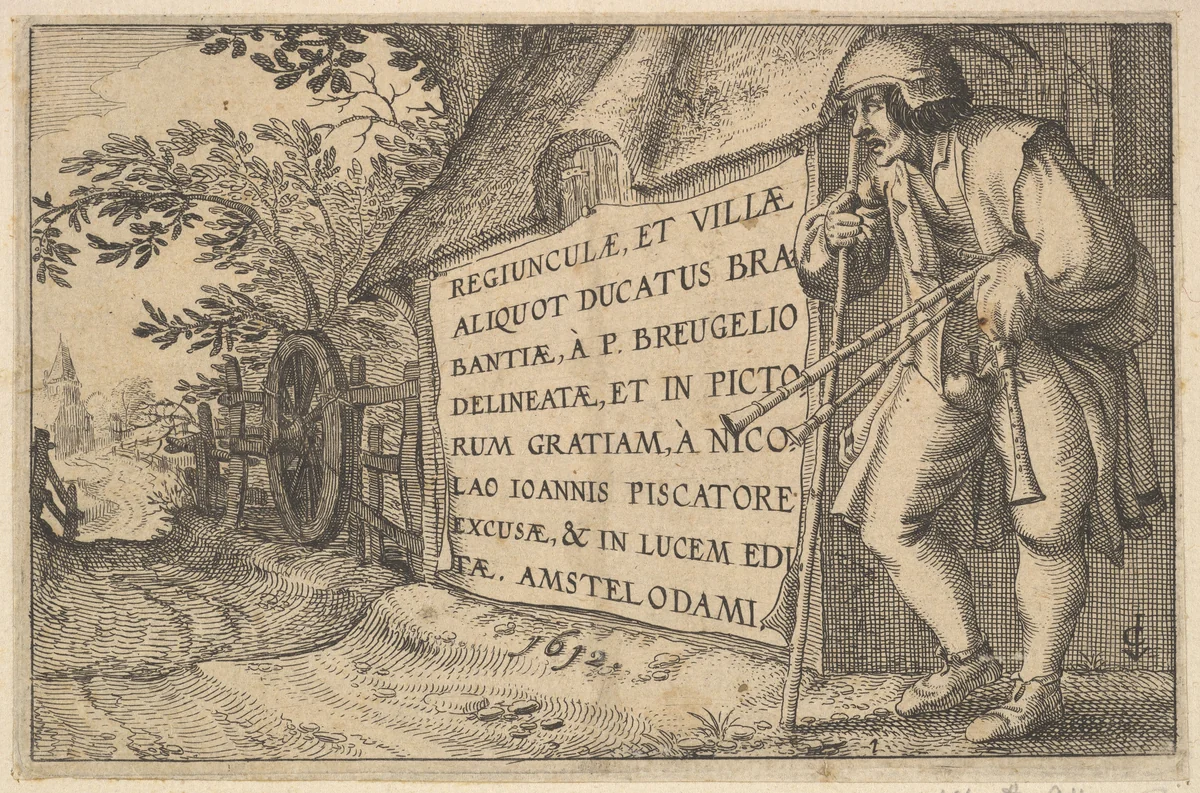 REGIUNCULÆ, ET VILLÆ
ALIQUOT DUCATUS BRA
BANTIÆ, À P. BREUGELIO
DELINEATÆ, ET IN PICTO
RUM GRATIAM, À NICO.
LAO IOANNIS PISCATORE
EXCUSÆ, & IN LUCEM EDI
TÆ. AMSTELODAMI.
1612.
1